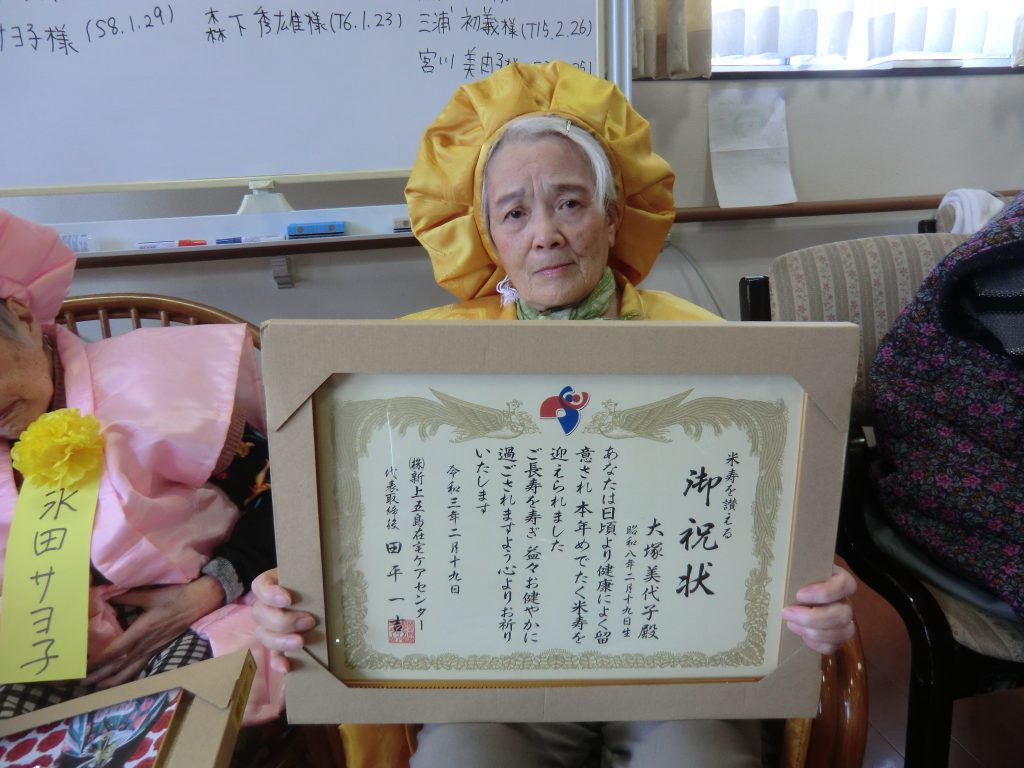 サヨ子様 (S8.1.29)
森下秀雄様(T6.1.23)
三浦初義様(T15.2.26)
宮川
永田サヨ子
米寿を讃える
御祝状
大塚美代子殿
昭和八年二月十九日生
あなたは日頃より健康によく留
意され本年めでたく米寿を
迎えられました
ご長寿を寿ぎ益々お健やかに
過ごされますよう心よりお祈り
いたします
令和三年二月十九日
㈱新上五島在宅ケアセンター
代表取締役 田平一吉